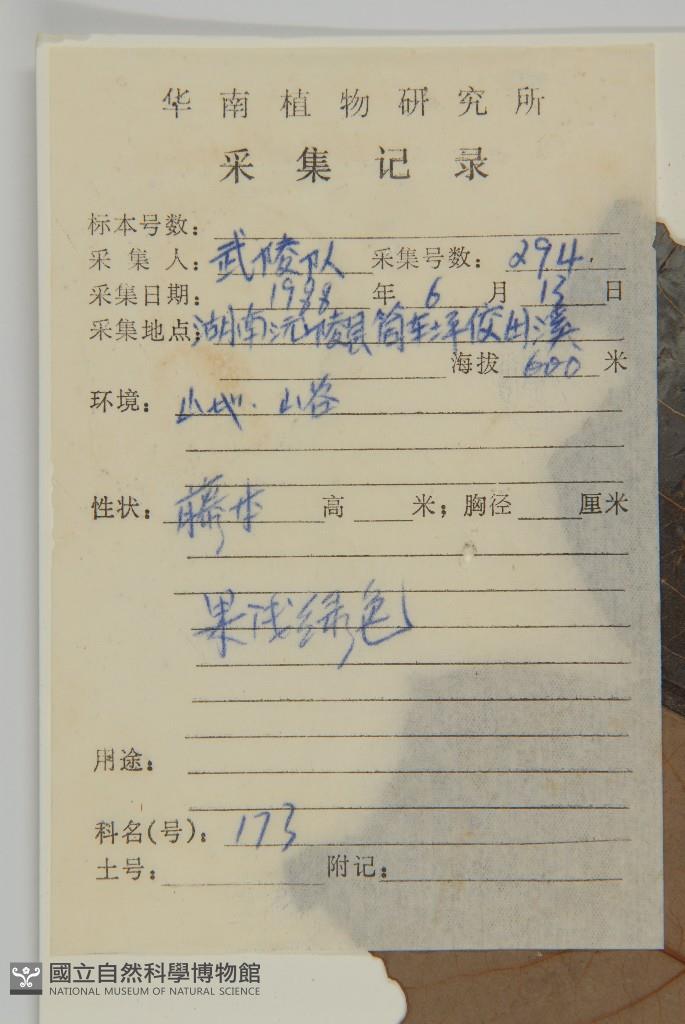 华南植物研究所
采集记录
标本号数：
采集人：武陵队 采集号数：294
采集日期：1988年6月13日
采集地点：湖南沅陵县筒车坪 田溪
海拔600米
环境：山地·山谷
性状：藤本 高 米；胸径 厘米
果浅绿色
用途：
科名(号)：173
土号： 附记：
國立自然科學博物館
NATIONAL MUSEUM OF NATURAL SCIENCE